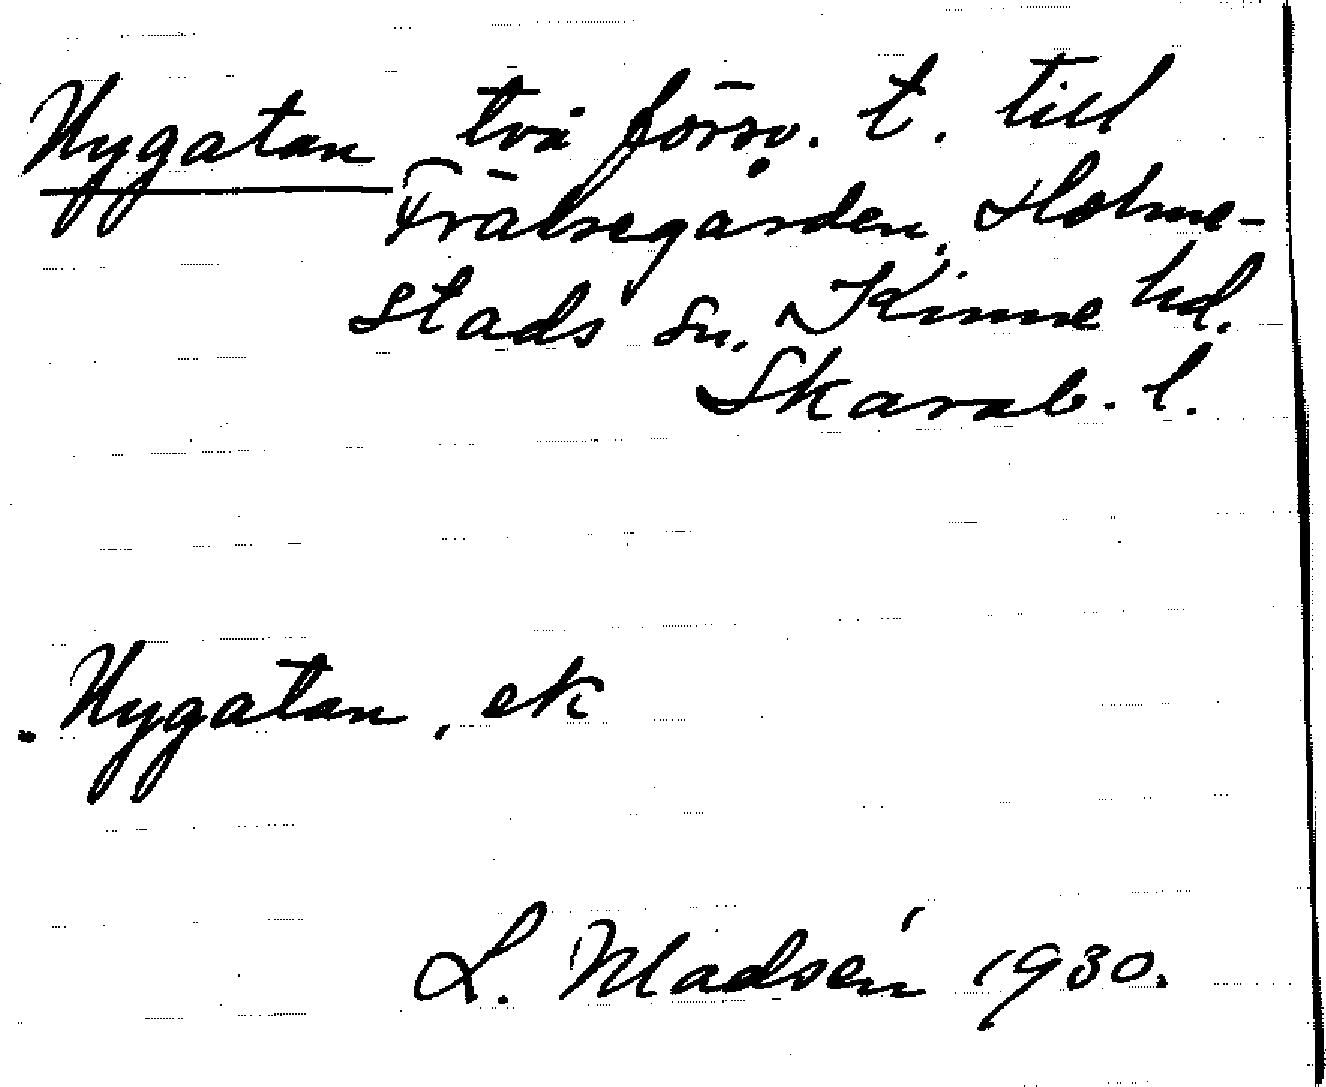 Nygatan två försv. t. till
Frälsegården, Holme-
stads sn, Kinne hd.
Skarab. l.
Nygatan, ek
L. Madsén 1930.